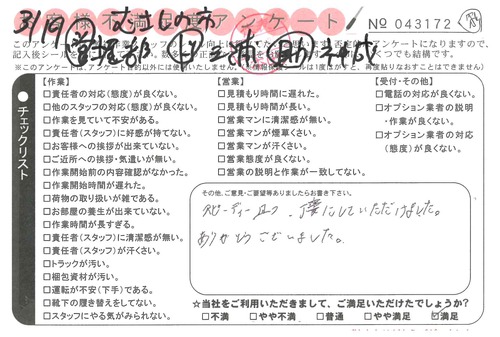 お客様不満足度アンケート
No 043172
チェックリスト
【作業】
□責任者の対応(態度)が良くない。
□他のスタッフの対応(態度)が良くない。
□作業を見ていて不安がある。
□責任者(スタッフ)に好感が持てない。
□お客様への挨拶が出来ていない。
□ご近所への挨拶・気遣いが無い。
□作業開始前の内容確認がなかった。
□作業開始時間が遅れた。
□荷物の取り扱いが雑である。
□お部屋の養生が出来ていない。
□作業時間が長すぎる。
□責任者(スタッフ)に清潔感が無い。
□責任者(スタッフ)が汗くさい。
□トラックが汚い。
□梱包資材が汚い。
□運転が不安(下手)である。
□靴下の履き替えをしてない。
□スタッフにやる気がみられない。
【営業】
□見積もり時間に遅れた。
□見積もり時間が長い。
□営業マンに清潔感が無い。
□営業マンが煙草くさい。
□営業マンが汗くさい。
□営業態度が良くない。
□営業の説明と作業が一致してない。
【受付・その他】
□電話の対応が良くない。
□オプション業者の説明
・作業が良くない。
□オプション業者の対応
(態度)が良くない。
その他、ご意見・ご要望等ありましたらお書き下さい。
スピーディーに、丁寧にしていただけました。
ありがとうございました。
☆当社をご利用いただきまして、ご満足いただけたでしょうか?
□不満 □やや不満 □普通 □やや満足 ☑満足